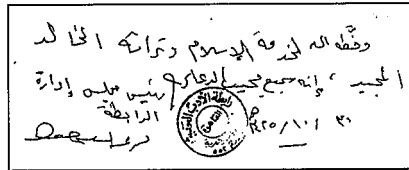 وفقه الله لخدمة الإسلام وتراثه الخالد
المجيد، إنه سميع مجيب الدعاء رئيس مجلس إدارة
الرابطة
٣٠/١٠/١٤٢٥ هـ